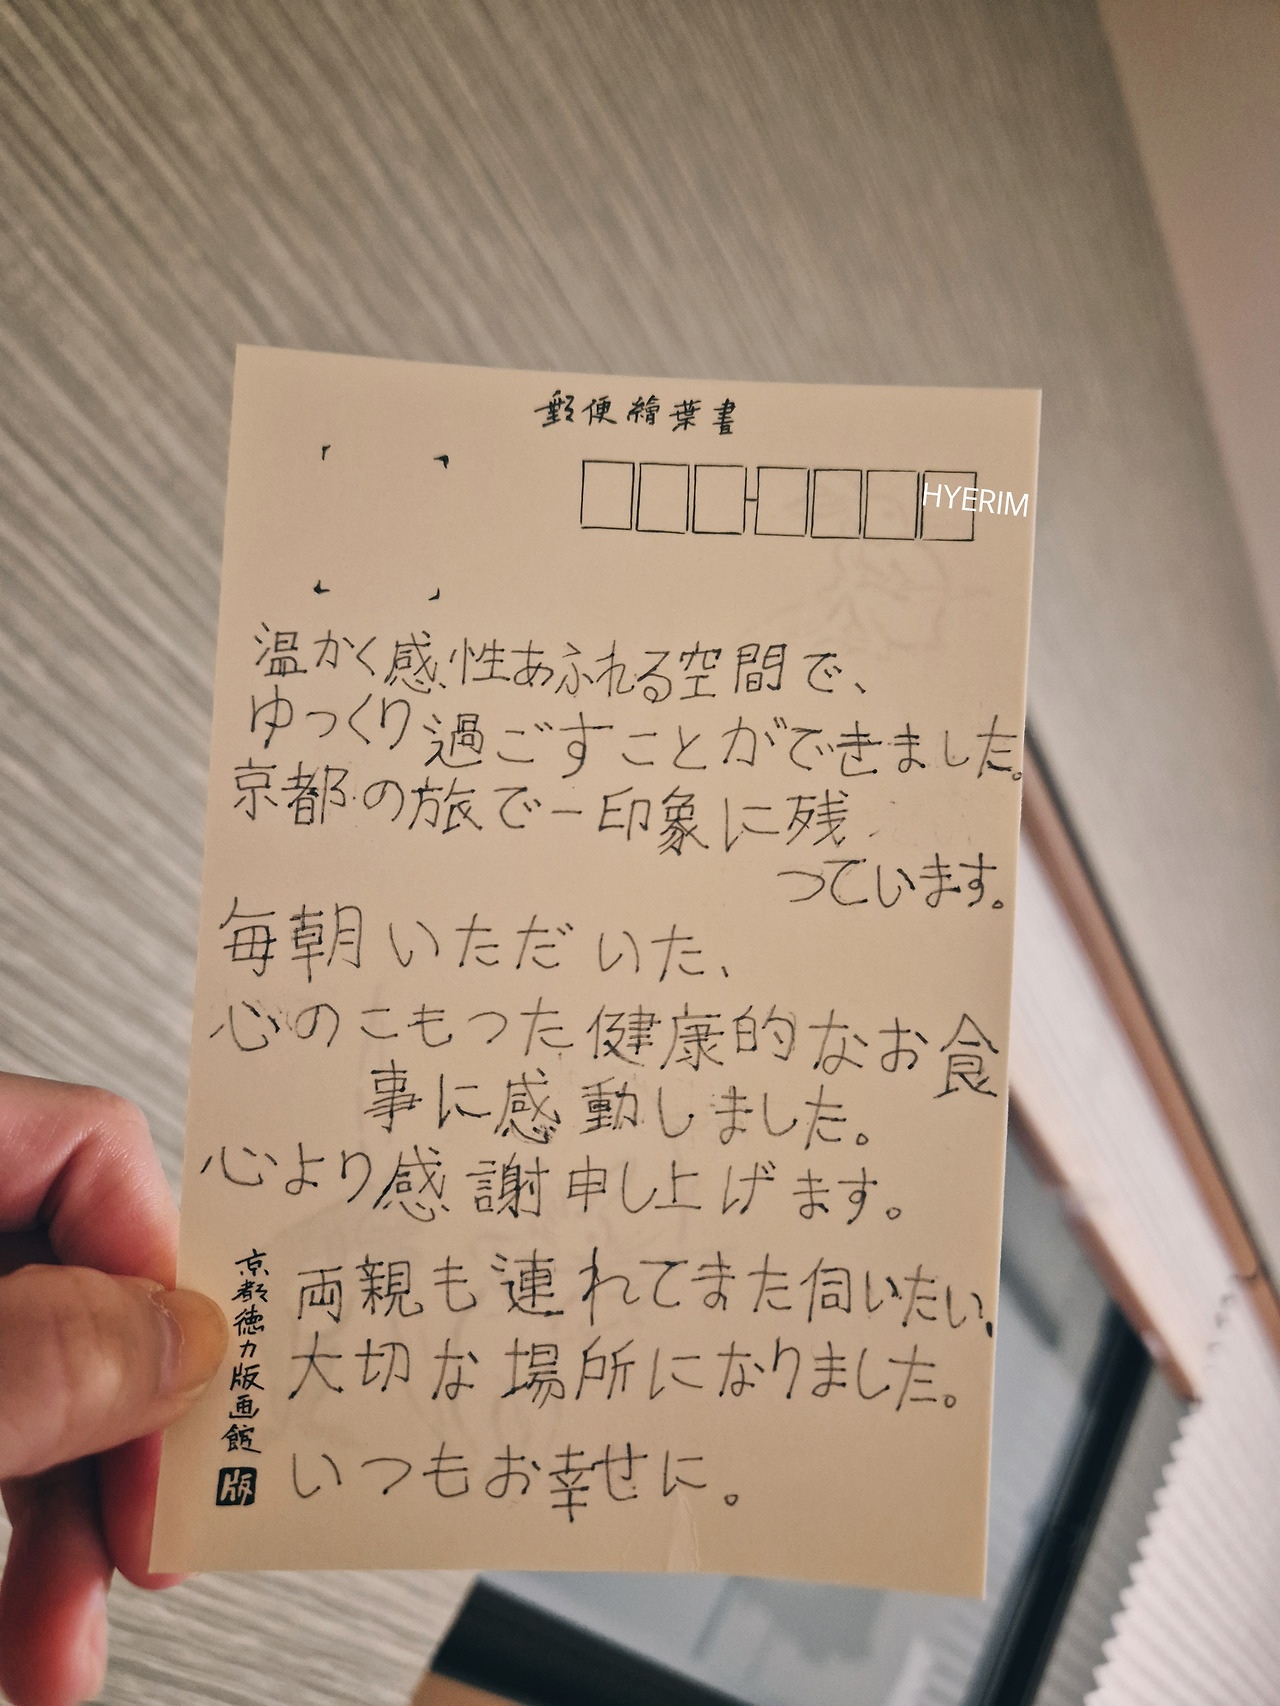 郵便繪葉書
HYERIM
温かく感性あふれる空間で、
ゆっくり過ごすことができました。
京都の旅で一印象に残
っています。
毎朝いただいた、
心のこもった健康的なお食
事に感動しました。
心より感謝申し上げます。
両親も連れてまた伺いたい、
大切な場所になりました。
いつもお幸せに。
京都徳力版画館
版